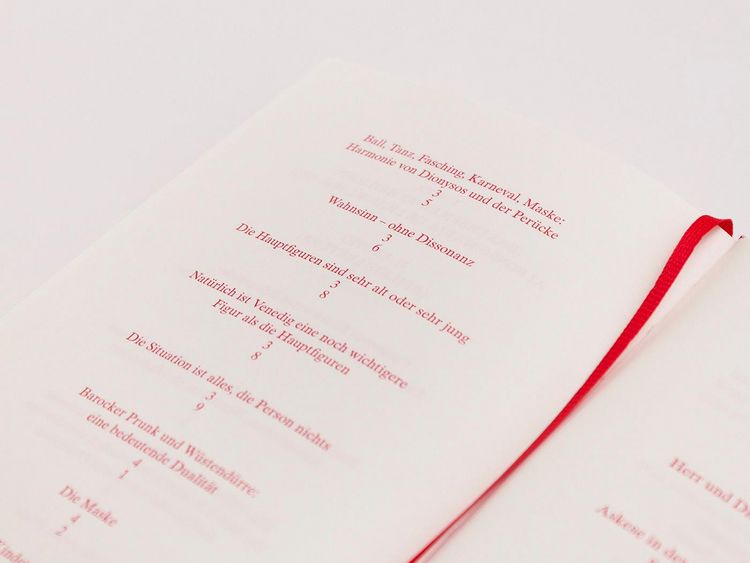 Ball, Tanz, Fasching, Karneval, Maske:
Harmonie von Dionysos und der Perücke
3
5
Wahnsinn – ohne Dissonanz
3
6
Die Hauptfiguren sind sehr alt oder sehr jung
3
8
Natürlich ist Venedig eine noch wichtigere
Figur als die Hauptfiguren
3
8
Die Situation ist alles, die Person nichts
3
9
Barocker Prunk und Wüstendürre:
eine bedeutende Dualität
4
1
Die Maske
4
2
Herr und
Askese in